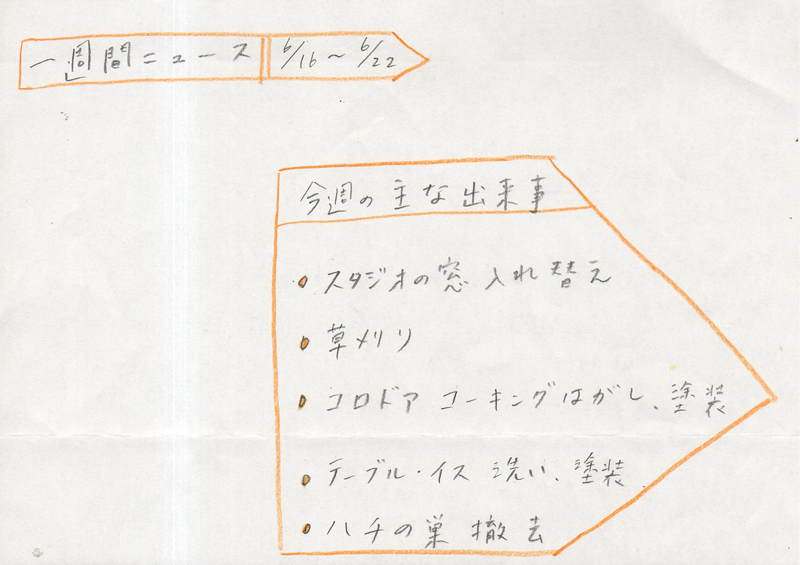 一週間ニュース 6/16～6/22
今週の主な出来事
スタジオの窓入れ替え
草刈り
コロドア コーキングはがし、塗装
テーブル・イス 洗い、塗装
ハチの巣 撤去